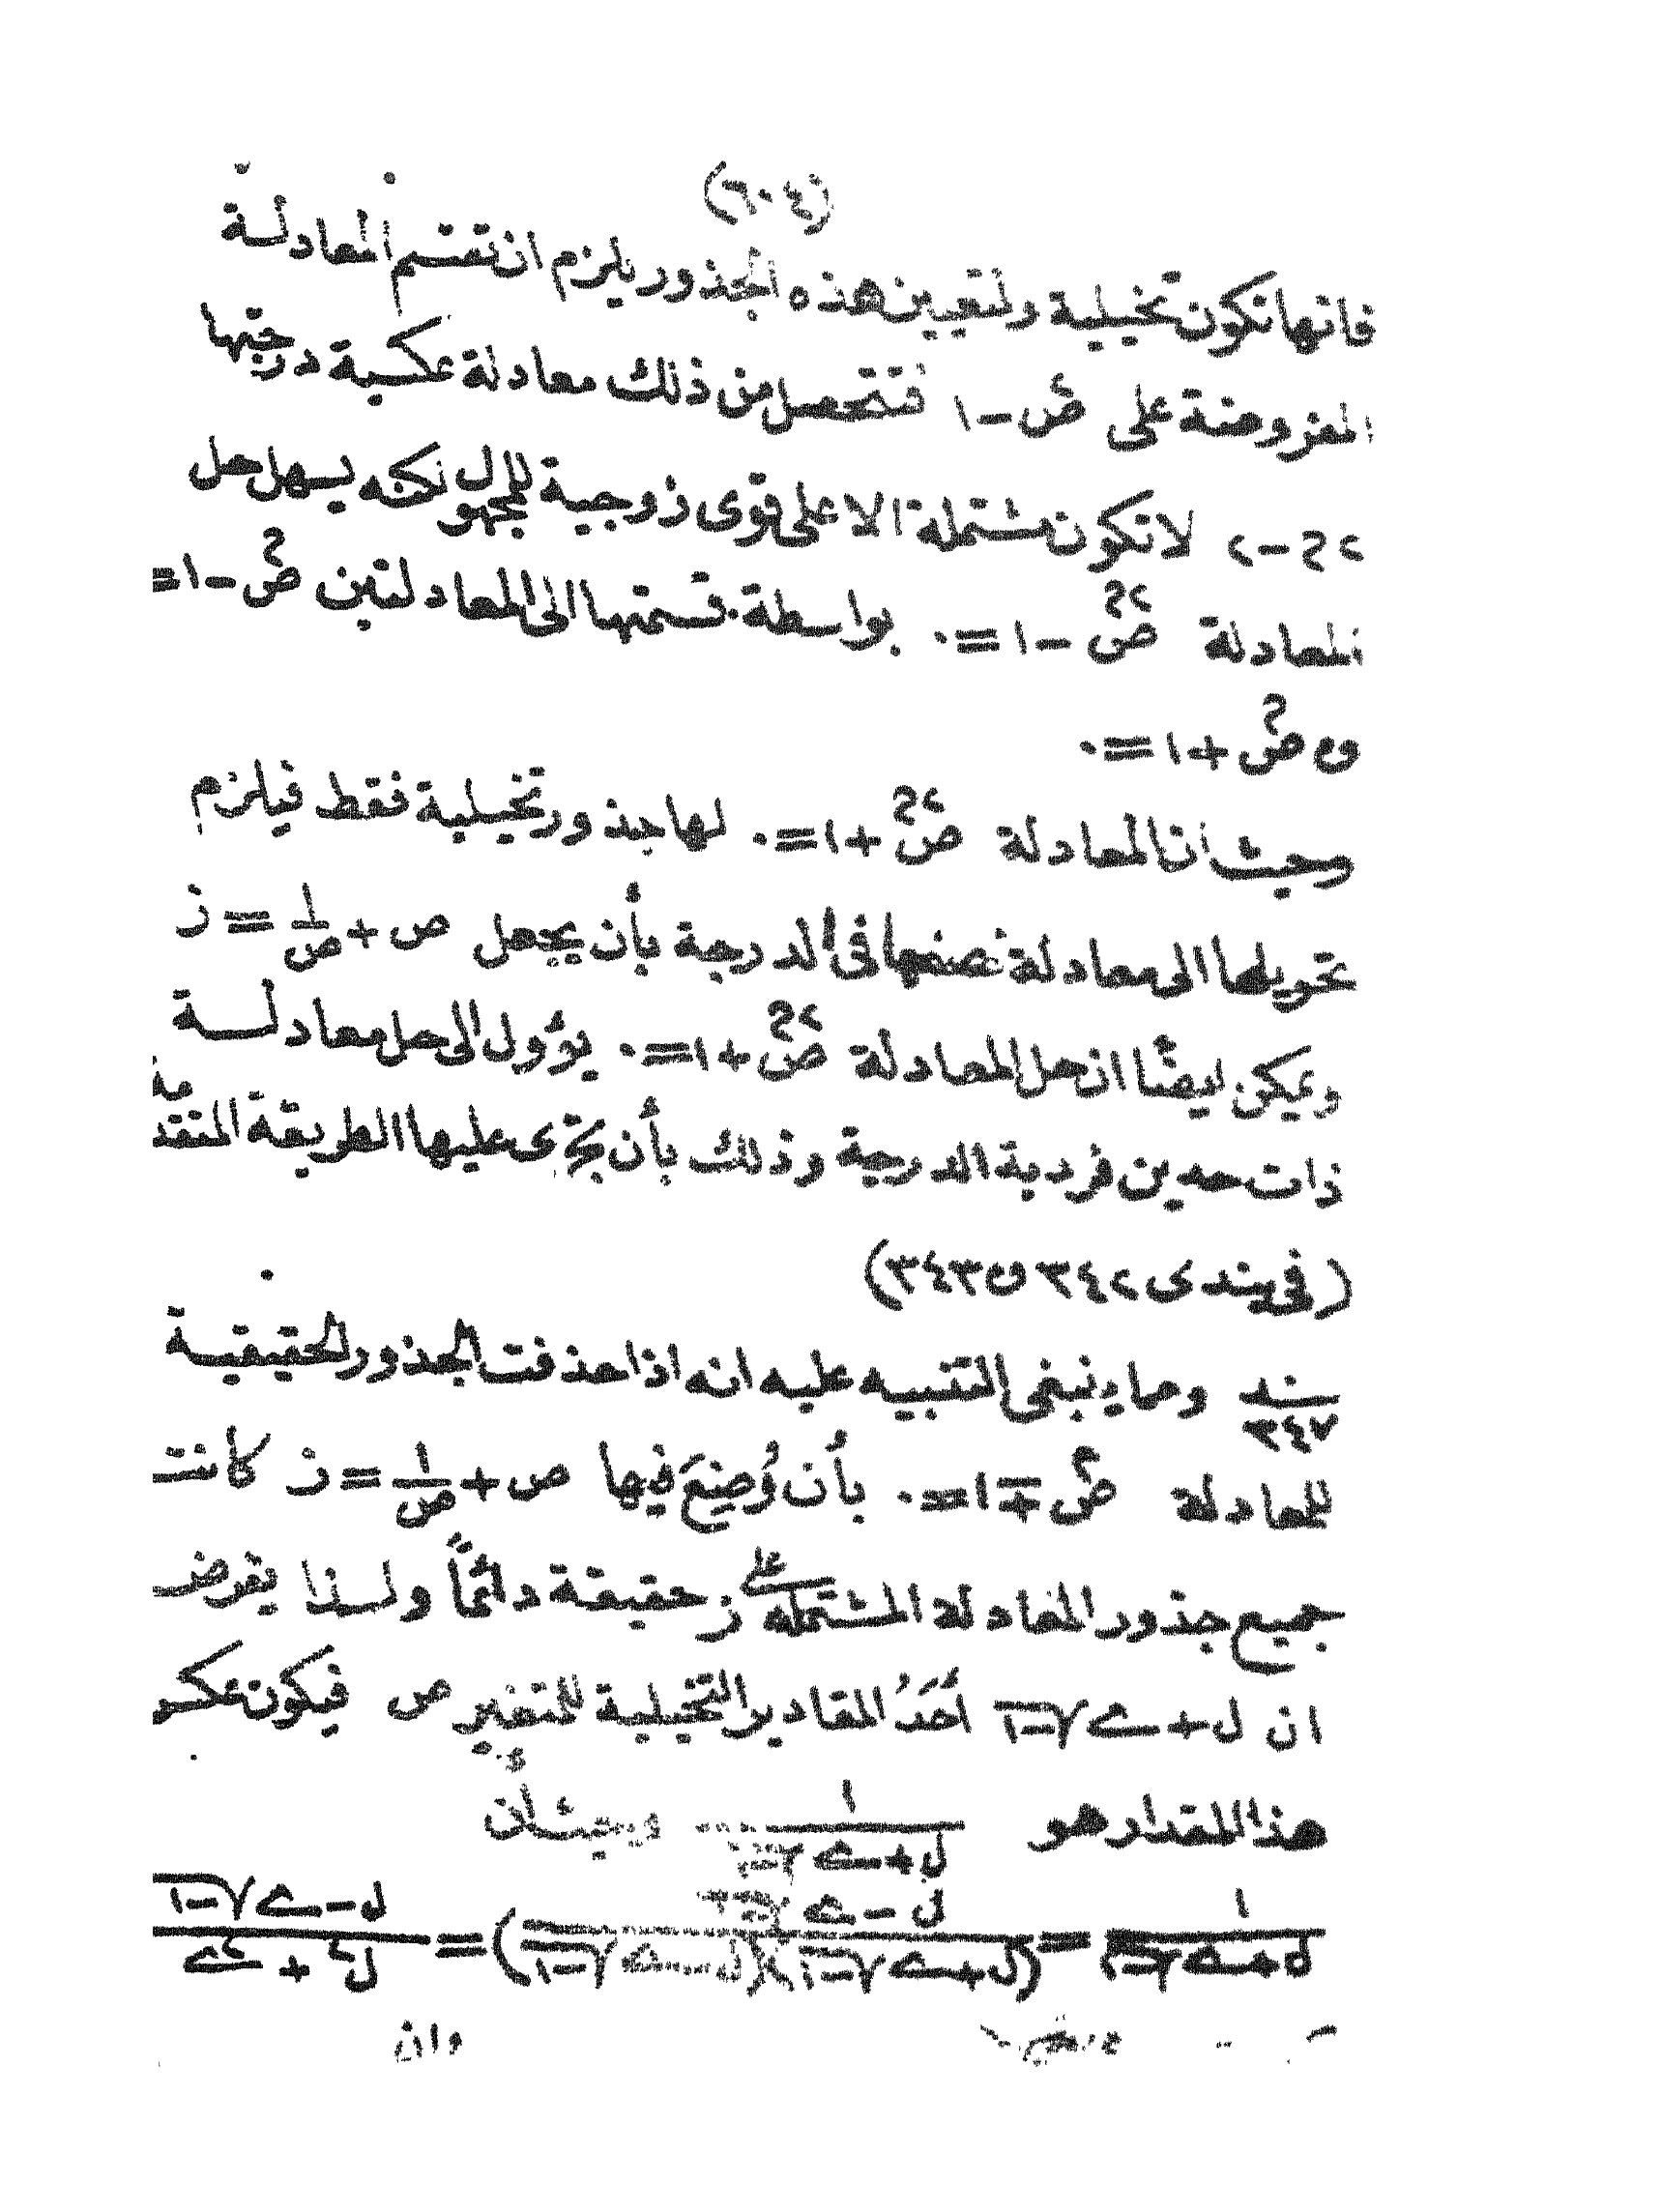 (٦٠٤)
فانها تكون تخيلية ولتعيين هذه الجذور يلزم ان تقسم المعادلة
المفروضة على ص٢ - ١ فتتحصل من ذلك معادلة عكسية درجتها
٢م - ٢ لا تكون مشتملة الا على قوى زوجية للمجهول لكنه يسهل حل
المعادلة ص٢م - ١ = ٠ بواسطة قسمتها الى المعادلتين صم - ١ =
و صم + ١ = ٠
وحيث ان المعادلة ص٢م + ١ = ٠ لها جذور تخيلية فقط فيلزم
تحويلها الى معادلة نصفها فى الدرجة بأن يجعل ص + ١/ص = ز
ويمكن ايضًا ان حل المعادلة ص٢م + ١ = ٠ يؤول الى حل معادلة
ذات حدين فردية الدرجة وذلك بأن تجرى عليها الطريقة المتقدمة
(فى بندى ٣٤٢ و ٣٤٣)
بند ٣٤٧ ومما ينبغى التنبيه عليه انه اذا حذفت الجذور الحقيقية
للمعادلة صم ∓ ١ = ٠ بأن وُضِعَ فيها ص + ١/ص = ز كانت
جميع جذور المعادلة المشتملة على ز حقيقة دائمًا ولذا يفرض
ان ل + ے√-١ أحَدُ المقادير التخيلية للمتغير ص فيكون عكس
هذا المقدار هو ١/(ل + ے√-١) وحيث ان
١/(ل + ے√-١) = (ل - ے√-١)/((ل + ے√-١)(ل - ے√-١)) = (ل - ے√-١)/(ل٢ + ے٢)
وان